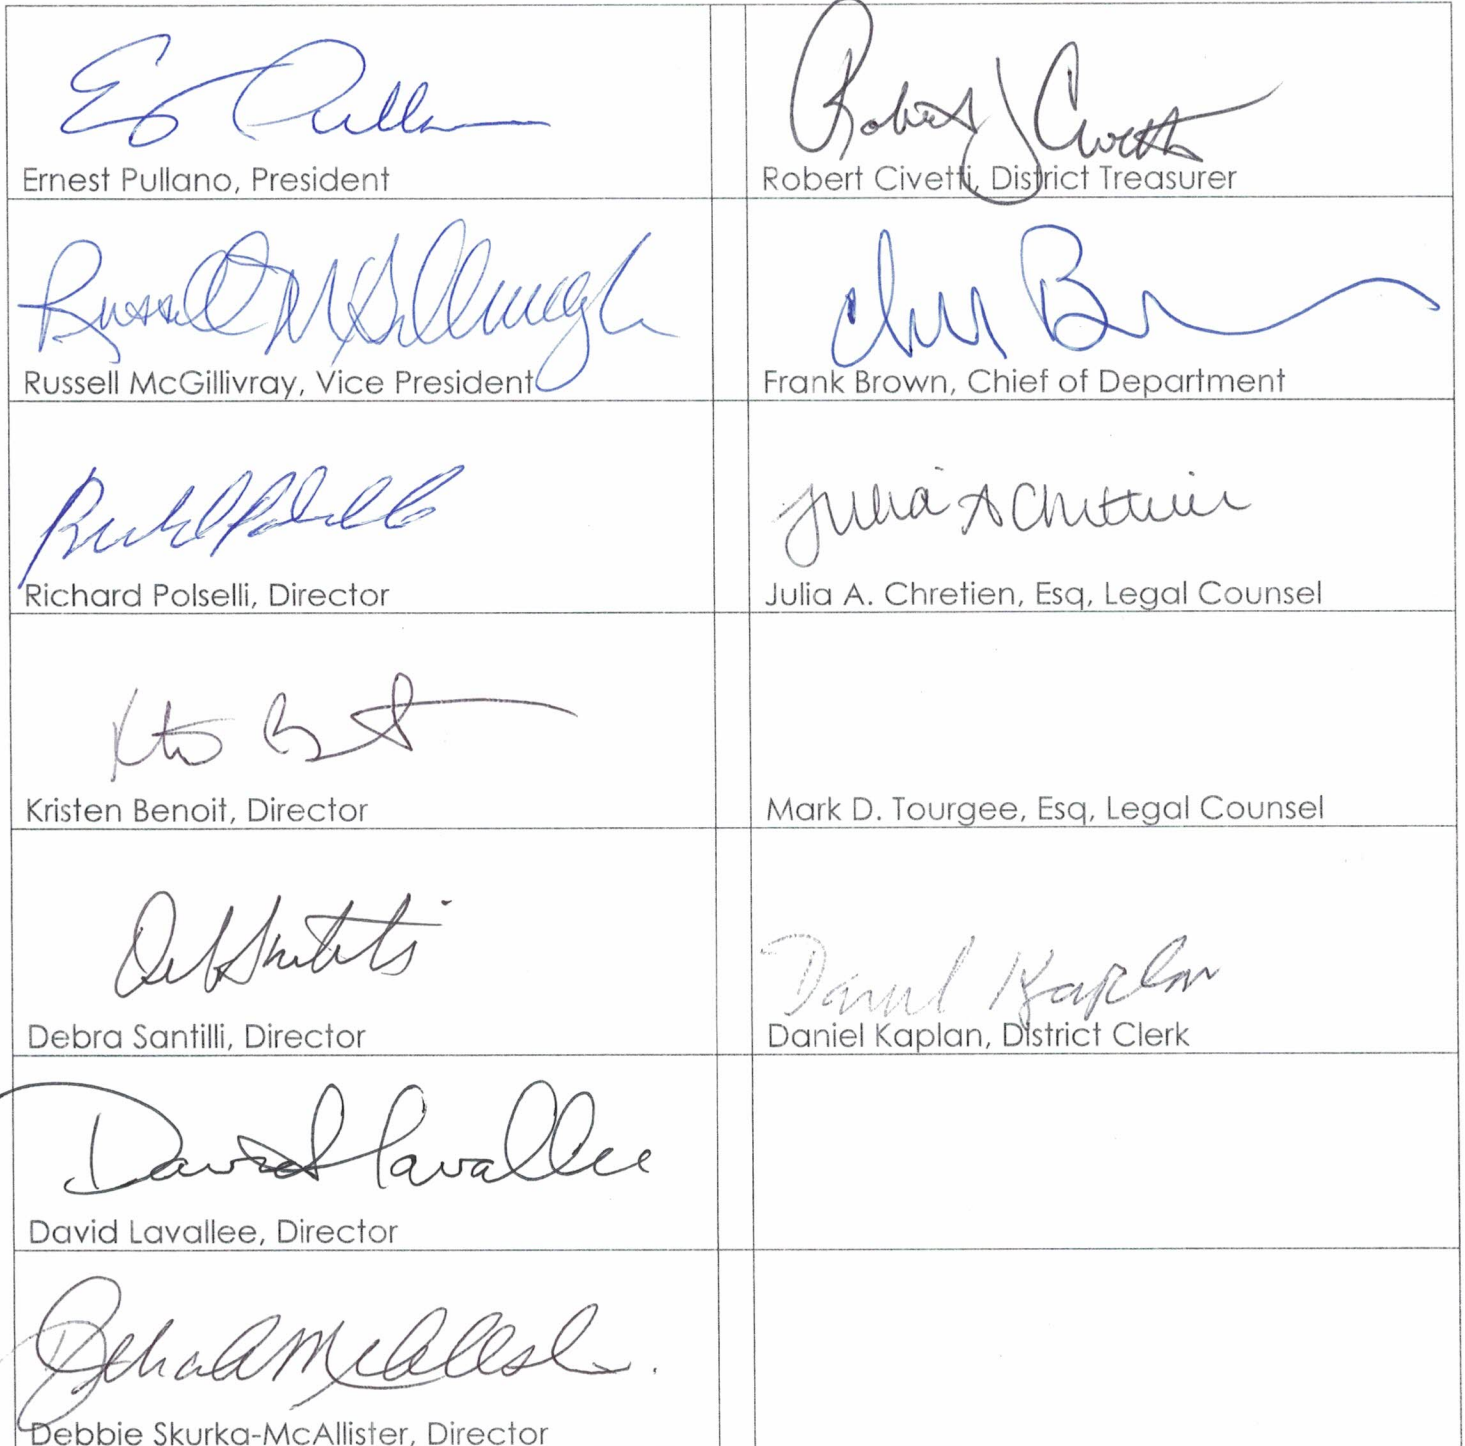 Ernest Pullano, President
Robert J Civetti
Robert Civetti, District Treasurer
Russell McGillivray
Russell McGillivray, Vice President
Frank Brown, Chief of Department
Richard Polselli, Director
Julia A Chretien
Julia A. Chretien, Esq, Legal Counsel
Kristen Benoit, Director
Mark D. Tourgee, Esq, Legal Counsel
Debra Santilli, Director
Daniel Kaplan
Daniel Kaplan, District Clerk
David Lavallee
David Lavallee, Director
Debbie Skurka-McAllister, Director